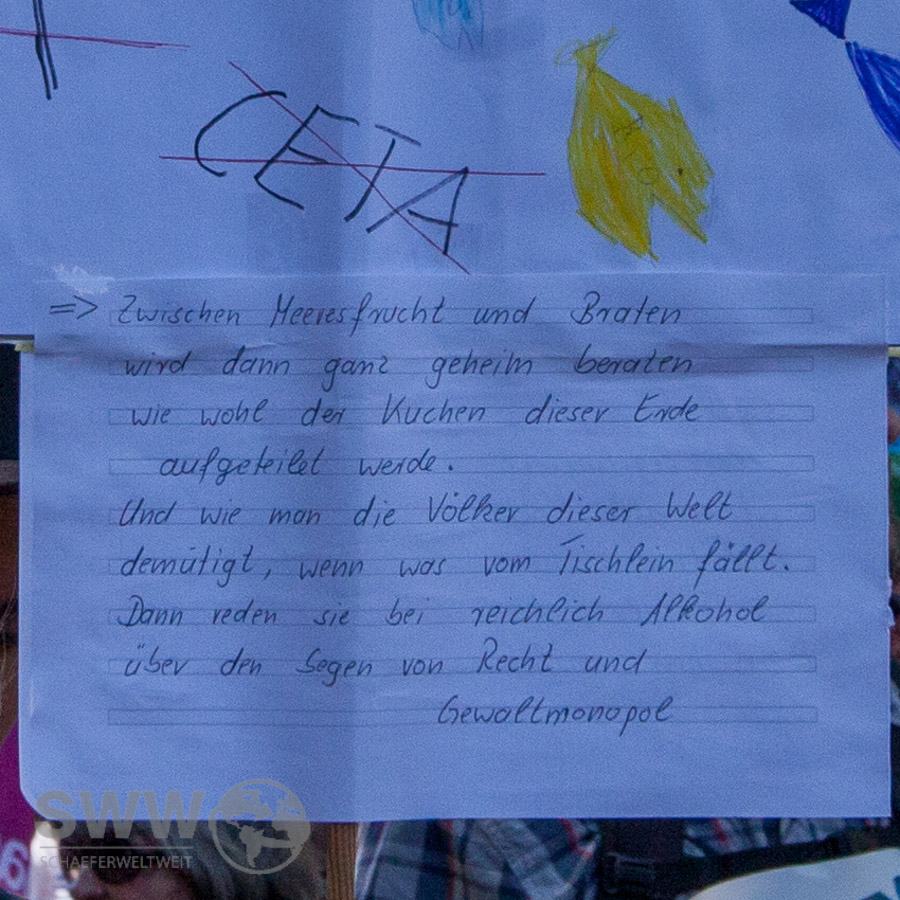 CETA
=> Zwischen Meeresfrucht und Braten
wird dann ganz geheim beraten
wie wohl der Kuchen dieser Erde
aufgeteilet werde.
Und wie man die Völker dieser Welt
demütigt, wenn was vom Tischlein fällt.
Dann reden sie bei reichlich Alkohol
über den Segen von Recht und
Gewaltmonopol
SWW
SCHAEFERWELTWEIT